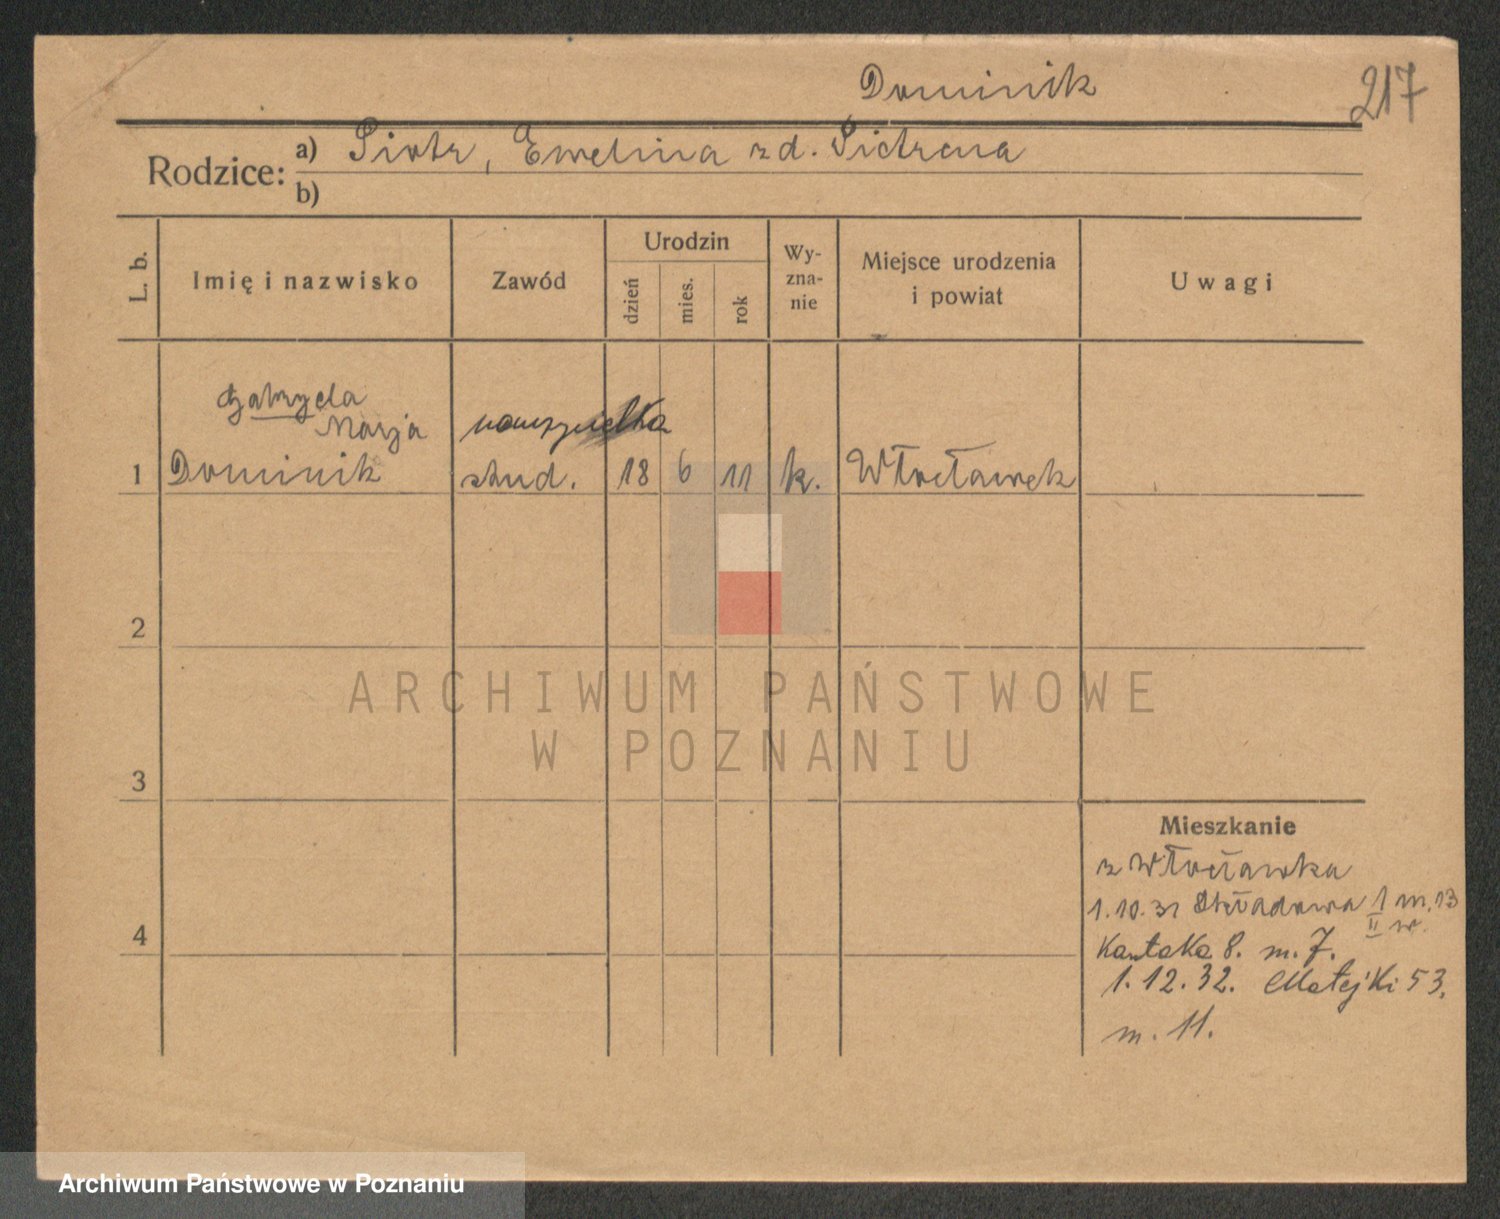 Dominik
217
Rodzice:
a) Piotr, Ewelina z d. Pietrzna
b)
L. b.
Imię i nazwisko
Zawód
Urodzin
dzień
mies.
rok
Wy-
zna-
nie
Miejsce urodzenia
i powiat
Uwagi
Gabryela
Marja
nauczycielka
1 Dominik stud. 18 6 11 k. Włocławek
2
3
4
Mieszkanie
z Włocławka
1.10.31 Składowa 1 m. 13
II w.
Kantaka 8. m. 7.
1.12.32. Matejki 53.
m. 11.
ARCHIWUM PAŃSTWOWE
W POZNANIU
Archiwum Państwowe w Poznaniu